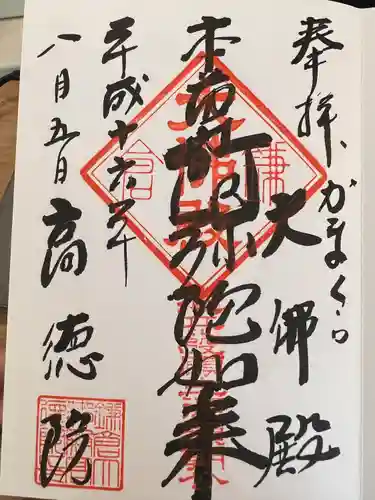 奉拝、かまくら
大佛殿
本尊阿弥陀如来
平成十六年
八月五日
高徳院
鎌倉